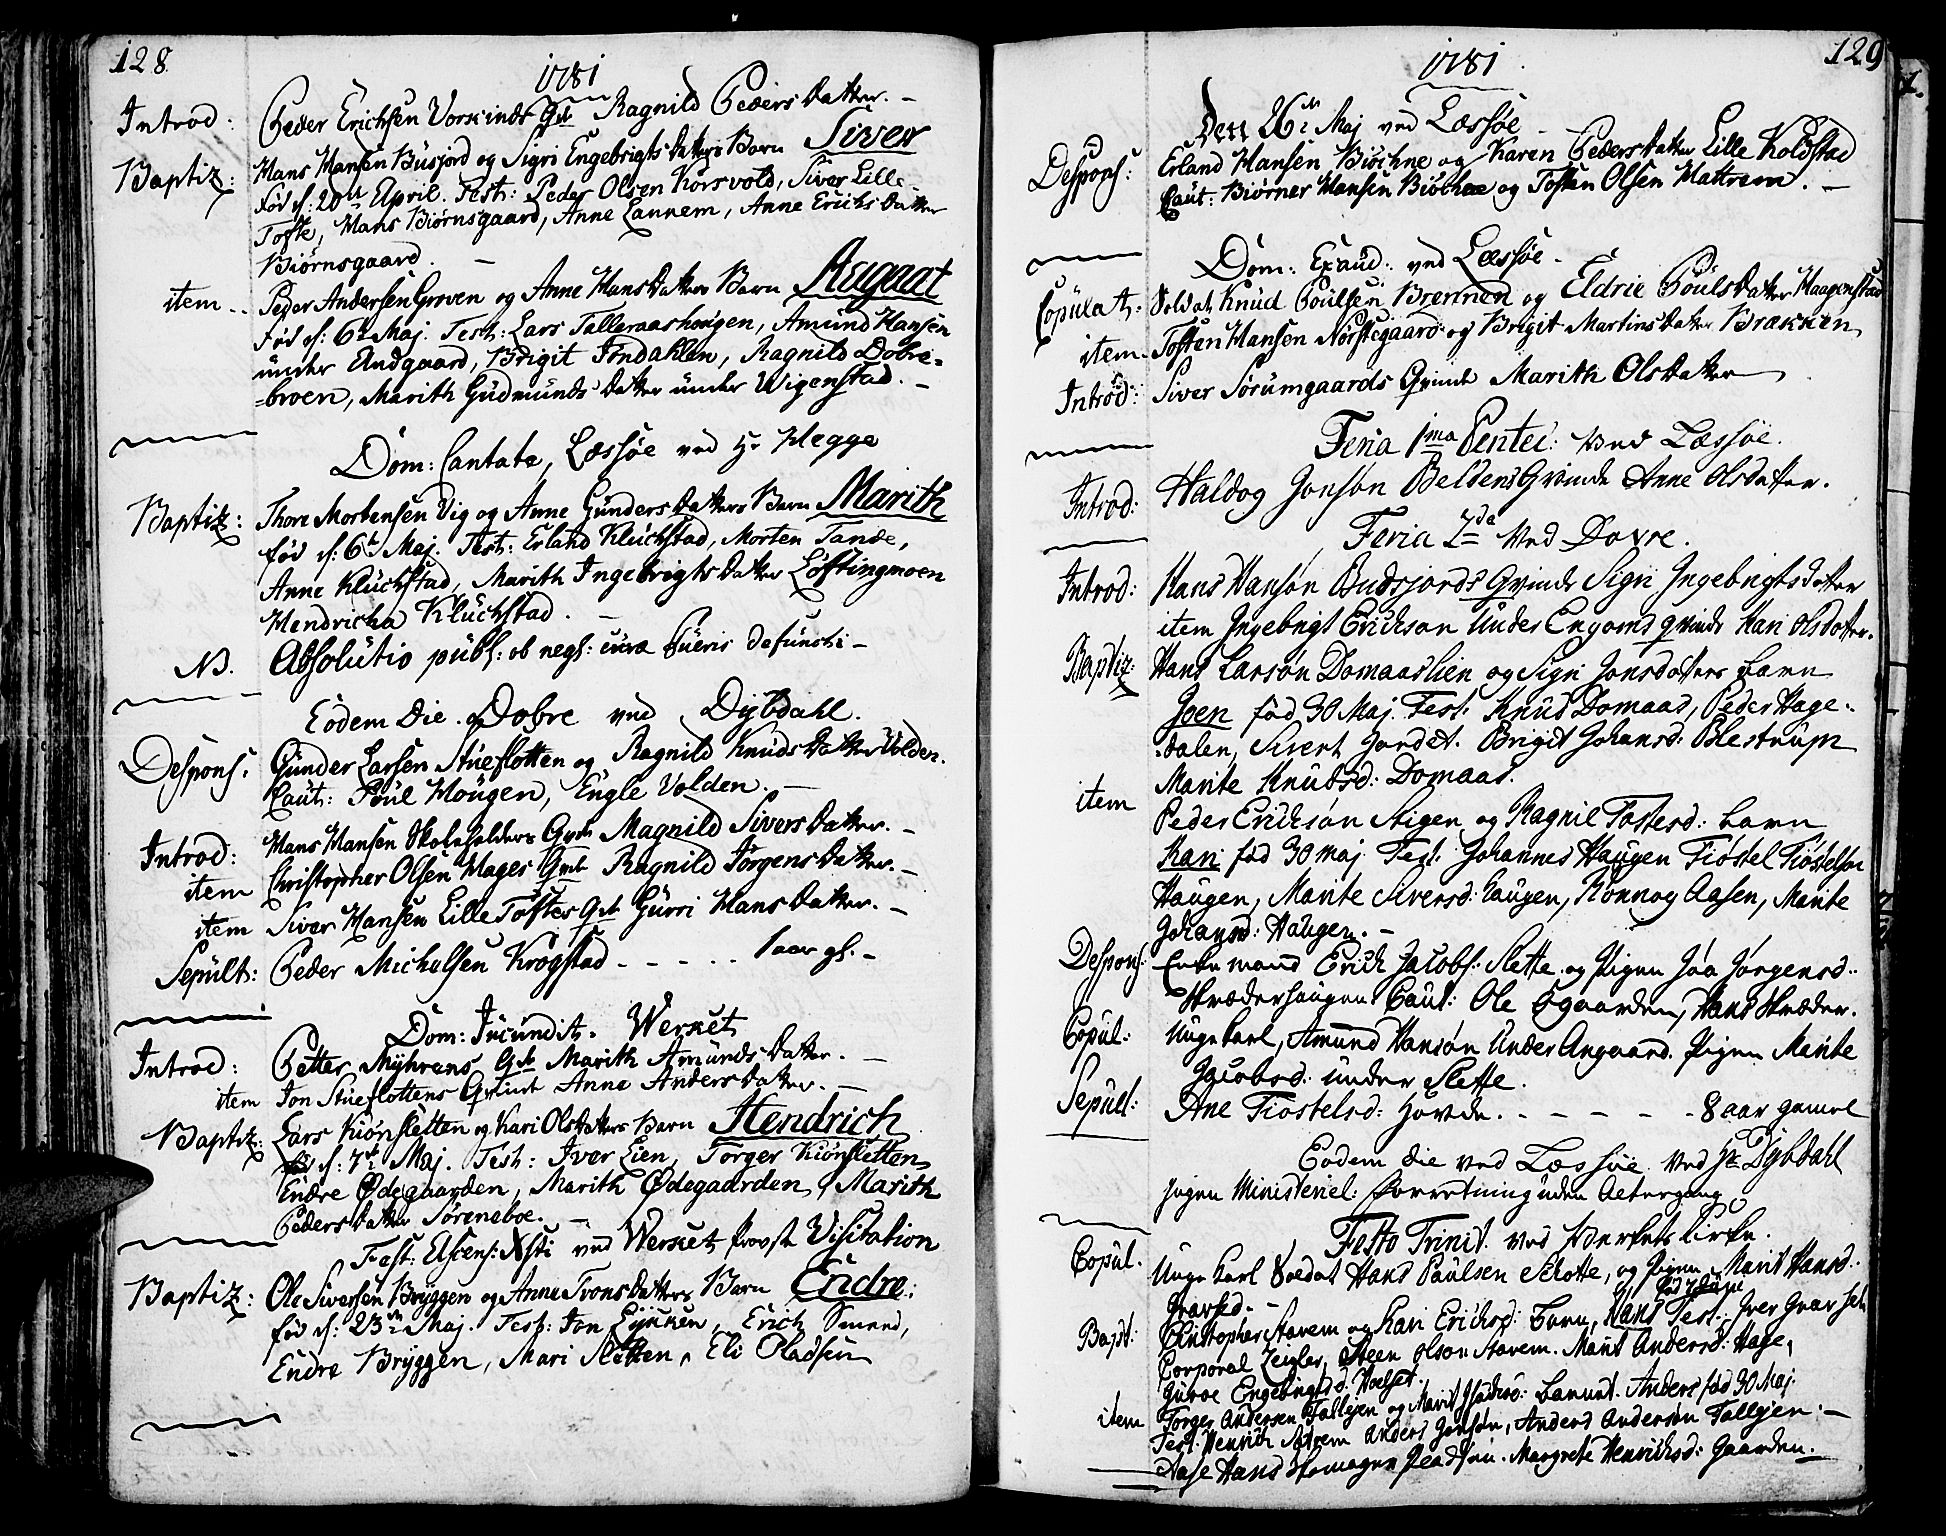 128
1781
Introd: Peder Erichsen Vorkinds Qv: Ragnild Peders Datter. –
Baptiz: Hans Hansen Busjord og Sigri Engebrigts Datters Barn Siver
Fød d: 20de April. Test: Peder Olsen Korsvold, Siver Lille-
Tofte, Hans Biørnsgaard, Anne Lannem, Anne Erichs Datter
Biørnsgaard. –
item.. Peder Andersen Groven og Anne Hans Datters Barn
Fød d: 6te Maj. Test: Lars Talleraashougen, Amund Hansen
under Andgaard, Brigit Jøndahlen, Ragnild Dobre-
=broen, Marith Gudmunds Datter under Wigenstad. –
Dom: Cantate, Læssøe ved Hr Hegge
Baptiz: Thore Mortensen Vig og Anne Gunders Datters Barn Marith
fød d: 6te Maj. Test: Erland Kluchstad, Morten Tande,
Anne Kluchstad, Marith Ingebrigts Datter Løftingmoen
Hendricha Kluchstad. –
NB. Absolutio publ: ob negl: cura Pueris defuncti –
Eodem Die. Dobre ved Dybdahl.
Despons: Gunder Larsen Stueflotten og Ragnild Knuds Datter Volden.
Caut: Poul Hougen, Engle Volden. –
Introd: Hans Hansen Skoleholders Qvde Magnild Sivers Datter. –
item Christopher Olsen Hages Qvde Ragnild Jørgens Datter. –
item Siver Hansen Lille Toftes Qvd Gurri Hans Datter. –
Sepult: Peder Michelsen Krogstad - - - - - 1 aar gl. –
Dom: Jucundit. Werket
Introd: Petter Myhrens Qvde Marith Amunds Datter. –
item Jon Stueflottens Qvinde Anne Anders Datter. –
Baptiz: Lars Kiønsletten og Kari Ols Datters Barn Hendrich
fød d: 7de Maj. Test: Iver Lien, Torger Kiønsletten
Endre Ødegaarden, Marith Ødegaarden, Marith
Peders Datter Søreneboe. –
Fest: Ascens: Xsti ved Werket Provste Visitation
Baptiz: Ole Siversen Bryggen og Anne Ivers Datters Barn Endre.
fød d: 23de Maj. Test: Jon Erich Smed,
Endre Bryggen, Mari Sletten, Eli Pladsen
129
1781.
Den 26de Maj ved Læssøe –
Despons: Erland Hansen Biøchne og Karen Peders Datter Lille Kolstad
Caut: Biørner Hansen Biøchne og Tosten Olsen Mattrem. –
Dom: Exaud: ved Læssøe –
Copulat: Soldat Knud Poulsen Brennen og Eldrie Pouls Datter Haagenstad
item. Tosten Hansen Norstegaard og Brigit Martins Datter Brækken
Introd: Siver Sørumgaards Qvinde Marith Ols Datter
Feria 1ma Pentec: ved Læssøe.
Introd: Haldog Jonsøn Beldens Qvinde Anne Olsdatter.
Feria 2da ved Dovre.
Introd: Hans Hansøn Budsjords Qvinde Sigri Ingebrigtsdatter
item Ingebrigt Ericksøn Under Engoms qvinde Kari Olsdatter.
Baptiz: Hans Larsøn Domaaslien og Sigri Jonsdatters barn
Joen fød 30 Maj. Test: Knud Domaas, Peder Hage-
dalen, Sivert Jordet. Brigit Johansd: Blestrup
Marite Knudsd: Domaas.
item Peder Ericksøn Stigen og Ragnil Tostesd: barn
Kari fød 30 maj Test: Johannes Haugen Fiøstel Tiøstelsøn
Haugen, Marite Siversd: Haugen, Rønnog Aasen, Marite
Johansd: Haugen. –
Despons: Enke mand Erich Jacobs: Slette og Pigen Joa Jørgensd:
Skræderhaugen Caut: Ole Øgaarden, Hans Skræder.
Copul: Unge karl, Amund Hansøn Under Angaard. Pigen Marite
Jacobsd: under Slette.
Sepult: Ane Tiostelsd: Hovde. - - - - - 8 aar gamel
Eodem die ved Læssøe ved Hr Dybdahl
Ingen Ministeriel: forretning uden Altergang
Festo Trinit. ved Werkets kirke.
Copul. Unge karl Soldat Hans Paulsen Slotte, og Pigen Marit Hansd:
Bapt: Christopher Stavem og Kari Ericksd: barn, Hans Test:
Corporal Zeigler, Steen Olson Stavem. Marit Andersd: Hage,
Guroe Engebrigtsd:
item Torger Andersen Tallejen og Marit barn Anders fød 30 Maj.
Test: Henrich Anders Jonsøn, Anders Andersøn Tallejen. –
Aase Hans Margrete Henrichsd: Gaarden. –